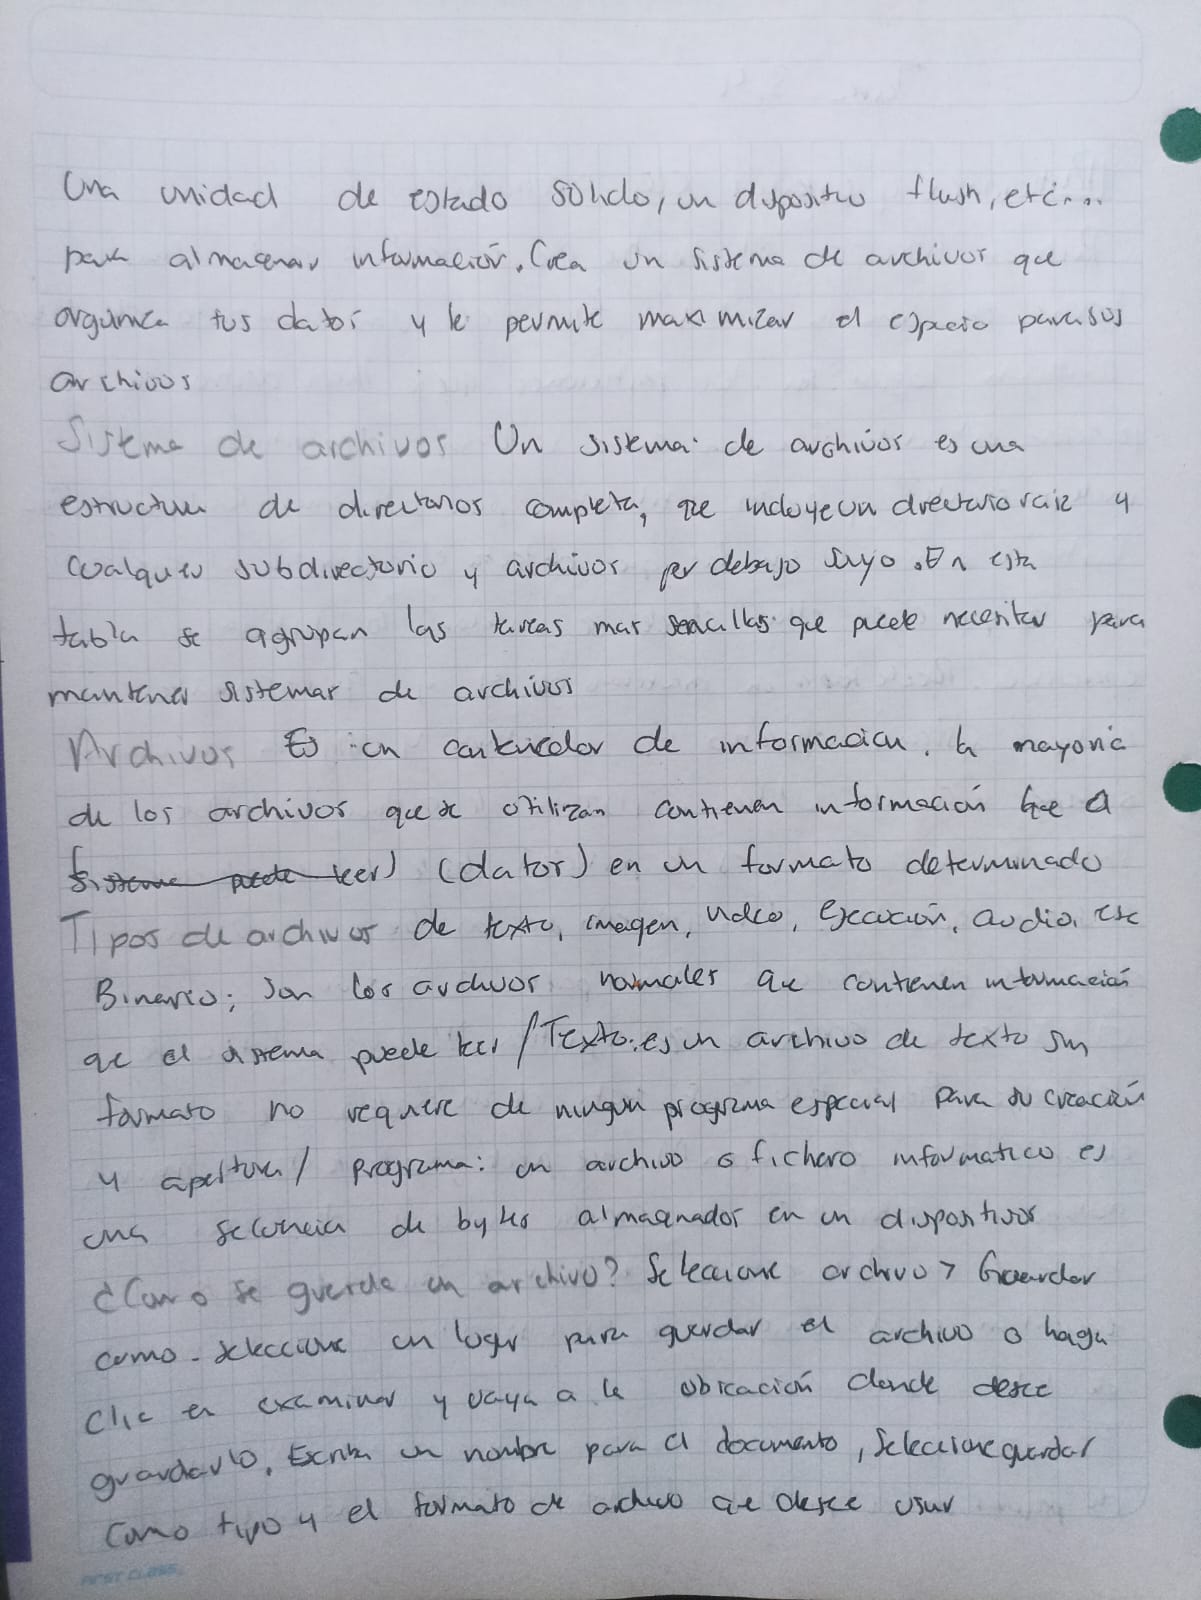 Una unidad de estado solido, un dispositivo flush, etc...
para almacenar información. Crea un sistema de archivos que
organiza tus datos y le permite maximizar el espacio para sus
archivos
Sistema de archivos Un sistema de archivos es una
estructura de directorios completa, que incluye un directorio raiz y
cualquier subdirectorio y archivos por debajo suyo. En esta
tabla se agrupan las tareas mas sencillas que puede necesitar para
mantener sistemas de archivos
Archivos Es un contenedor de informacion. la mayoria
de los archivos que se utilizan contienen información que el
sistema puede leer) (datos) en un formato determinado
Tipos de archivos de texto, imagen, video, ejecución, audio, etc
Binario; son los archivos normales que contienen información
que el sistema puede leer / Texto: es un archivo de texto sin
formato no requiere de ningun programa especial para su creación
y apertura / programa: un archivo o fichero informatico es
una secuencia de bytes almacenados en un dispositivos
¿Como se guarda un archivo? Seleccione archivo > Guardar
como - seleccione un lugar para guardar el archivo o haga
clic en examinar y vaya a la ubicación donde desee
guardarlo. Escriba un nombre para el documento, seleccione guardar
como tipo y el formato de archivo que desee usar
FIRST CLASS